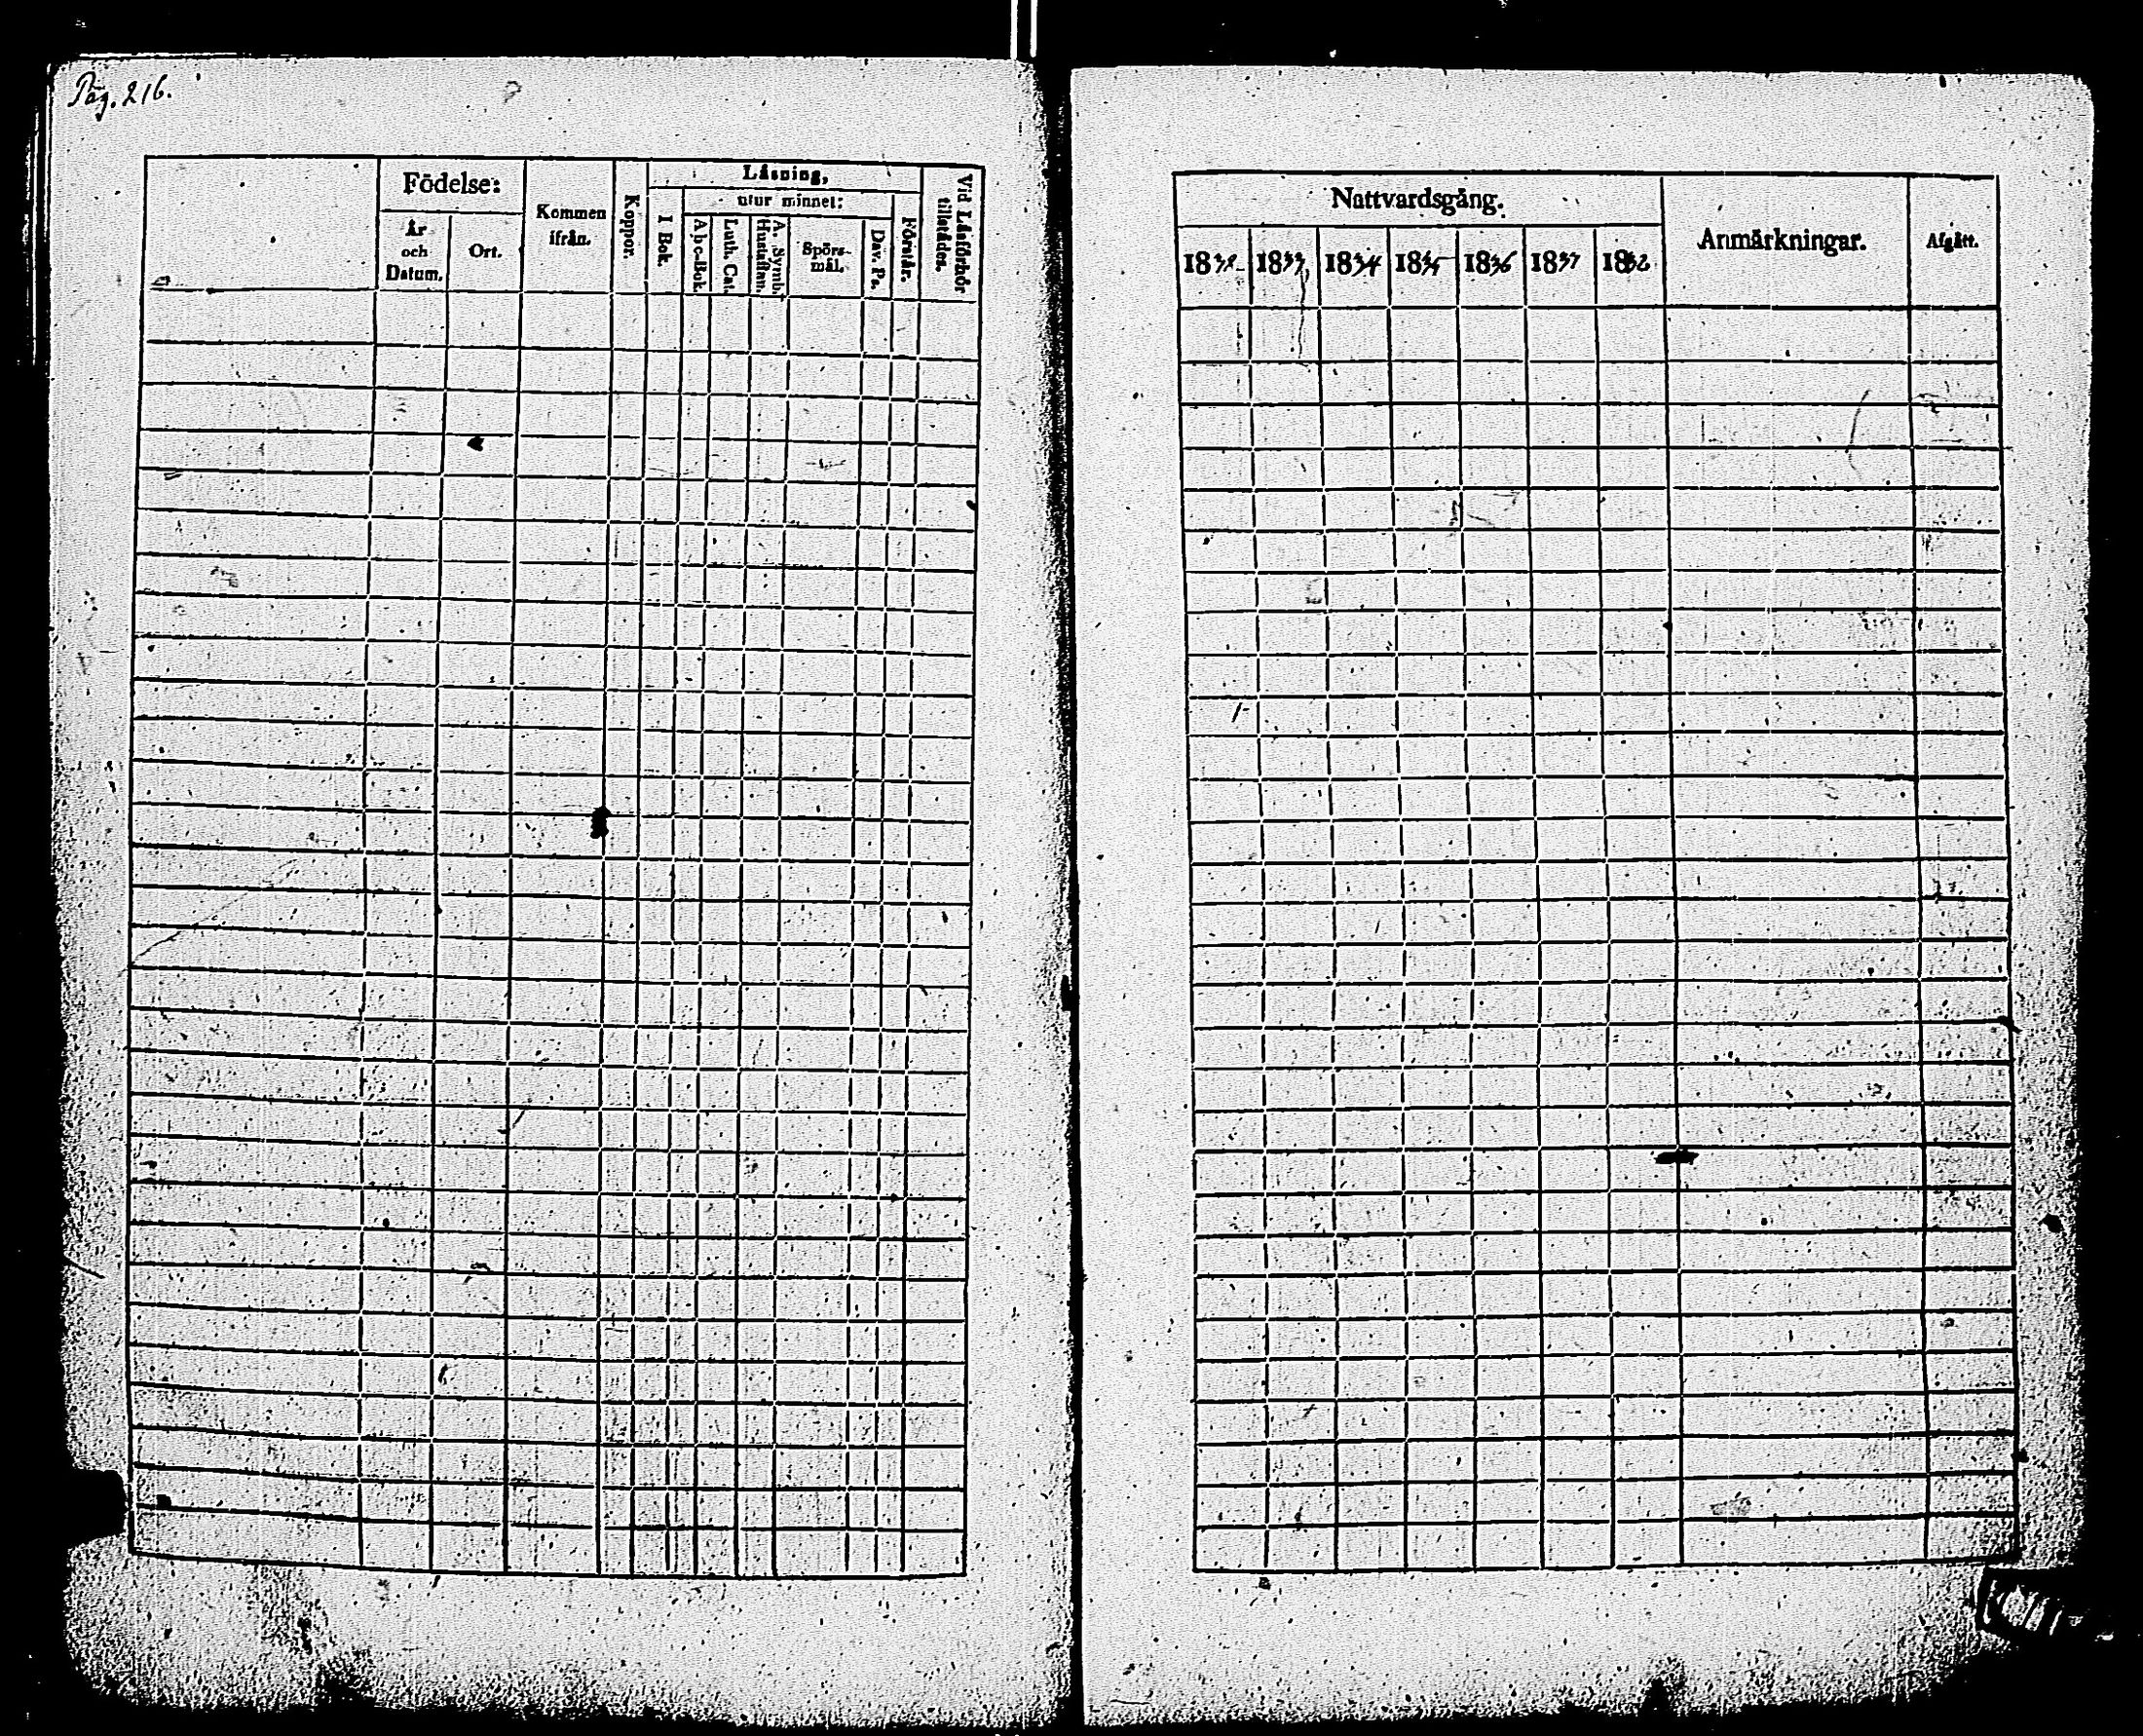 Pag. 216.
Födelse:
År och Datum.
Ort.
Kommen ifrån.
Koppor.
Läsning,
I Bok.
utur minnet:
Abc-Bok.
Luth. Cat.
A. Symb. Hustaflan.
Spörs-
mål.
Dav. Ps.
Förstår.
Vid Läsförhör tillstädes.
Nattvardsgång.
1833
1834
1835
1836
1837
Anmärkningar.
Afgått.